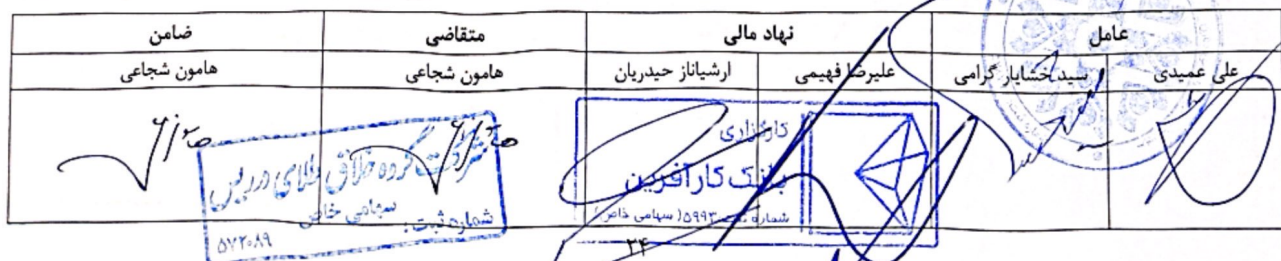 عامل نهاد مالی متقاضی ضامن
علی عمیدی سید خشایار گرامی علیرضا فهیمی ارشیاناز حیدریان هامون شجاعی هامون شجاعی
کارگزاری
بانک کارآفرین
شماره ثبت ۵۹۹۳ (سهامی خاص)
شرکت گروه خلاق طلای
سهامی خاص
شماره ثبت:
۵۷۲۰۸۹
۲۴